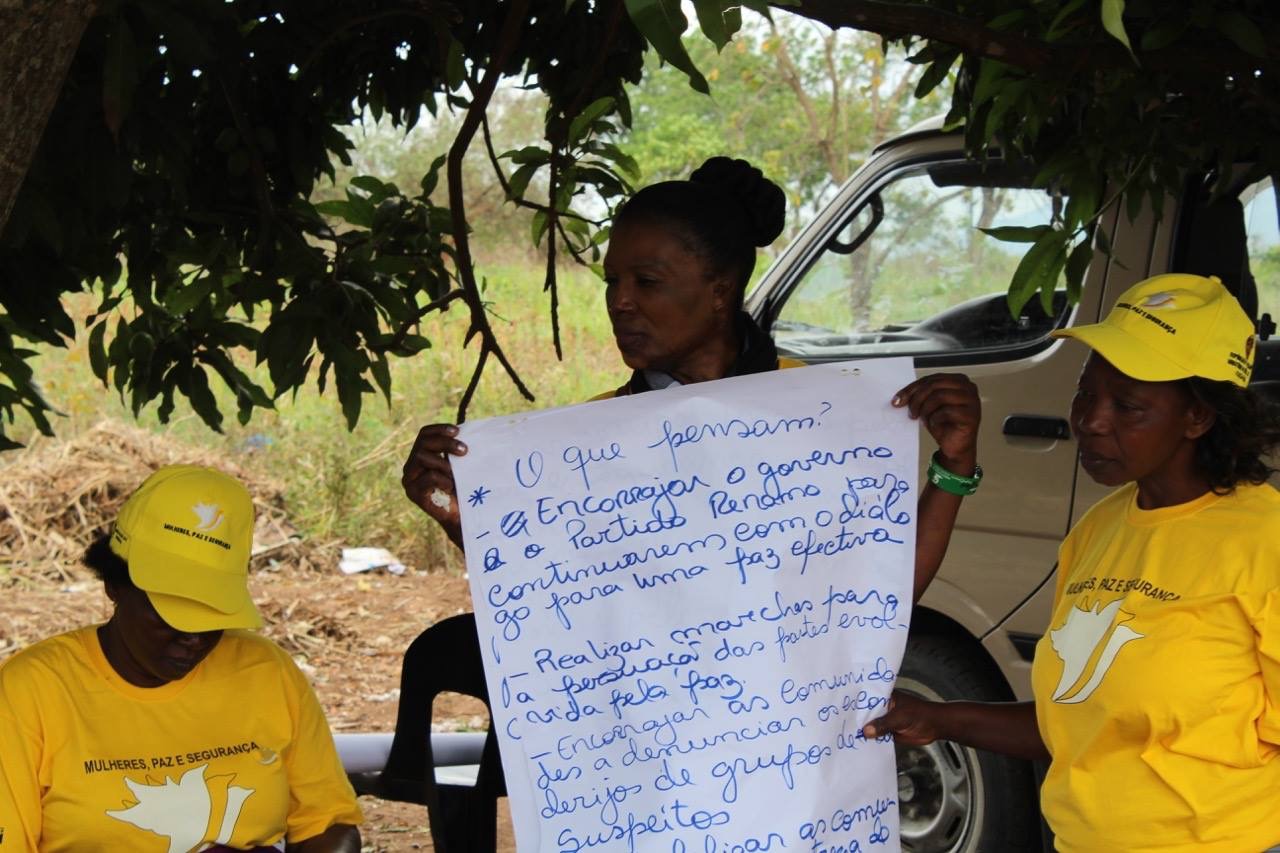 O que pensam?
* - Encorrajar o governo
e o Partido Renamo para
continuarem com o diálo
go para uma paz efectiva
- Realizar marchas para
a persuaçaõ das partes evol-
vida pela paz.
- Encorrajar as comunida
des a denunciar os escon
derijos de grupos de
suspeitos
as comu
MULHERES, PAZ E SEGURANÇA
MULHERES, PAZ E SEGURANÇA
MULHERES, PAZ E SEGURANÇA
MULHERES, PAZ E SEGURANÇA